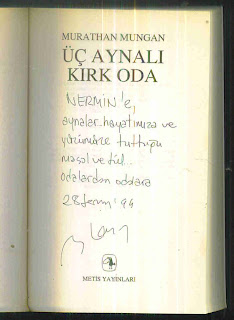 MURATHAN MUNGAN
ÜÇ AYNALI
KIRK ODA
NERMİN'e,
aynalar hayatımıza ve
yüzümüze tuttuğu
masal ve
odalardan odalara
28 '99
METİS YAYINLARI